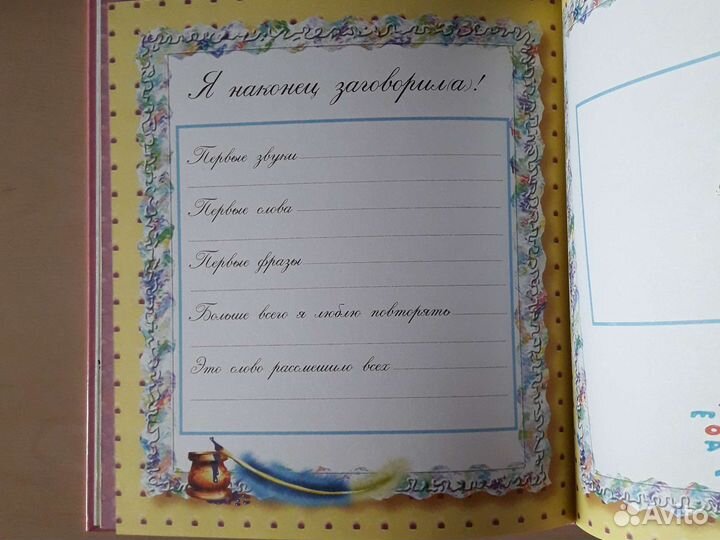 Я наконец заговорил(а)!
Первые звуки
Первые слова
Первые фразы
Больше всего я люблю повторять
Это слово рассмешило всех
Avito